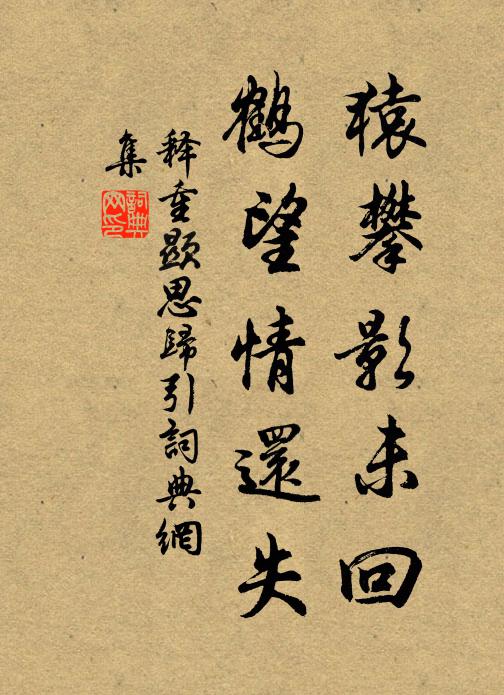 猿攀影未回
鶴望情還失
釋重顯思歸引詞典網
集
詞典
网印